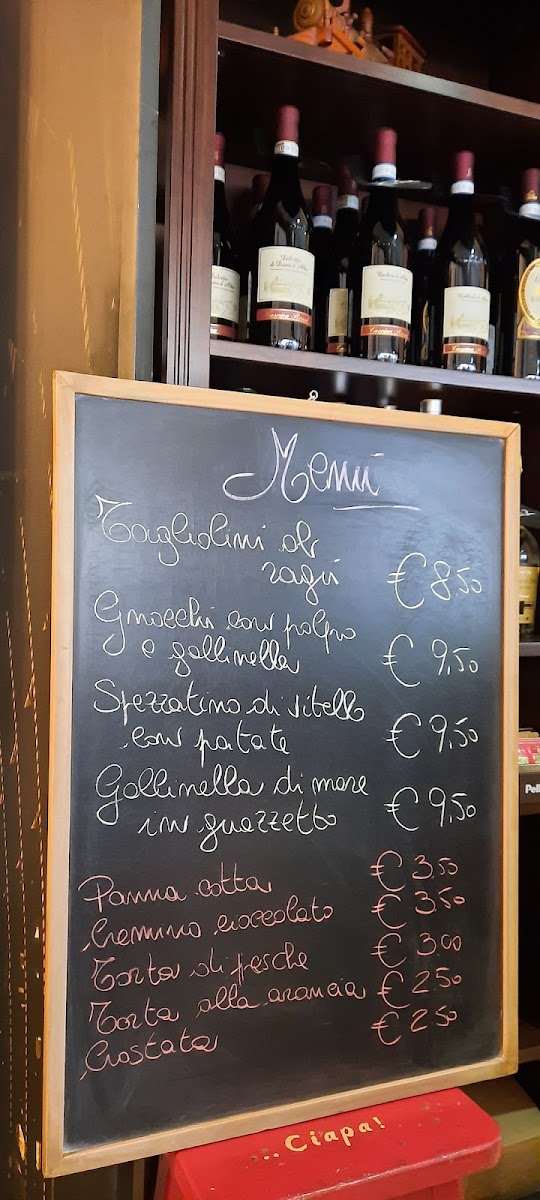 Menù
Tagliolini al
ragù € 8,50
Gnocchi con polpo
e gallinella € 9,50
Spezzatino di vitello
con patate € 9,50
Gallinella di mare
in guazzetto € 9,50
Panna cotta € 3.50
Cremino cioccolato € 3.50
Torta di pesche € 3.00
Torta alla arancia € 2.50
Crostata € 2.50
... Ciapa!